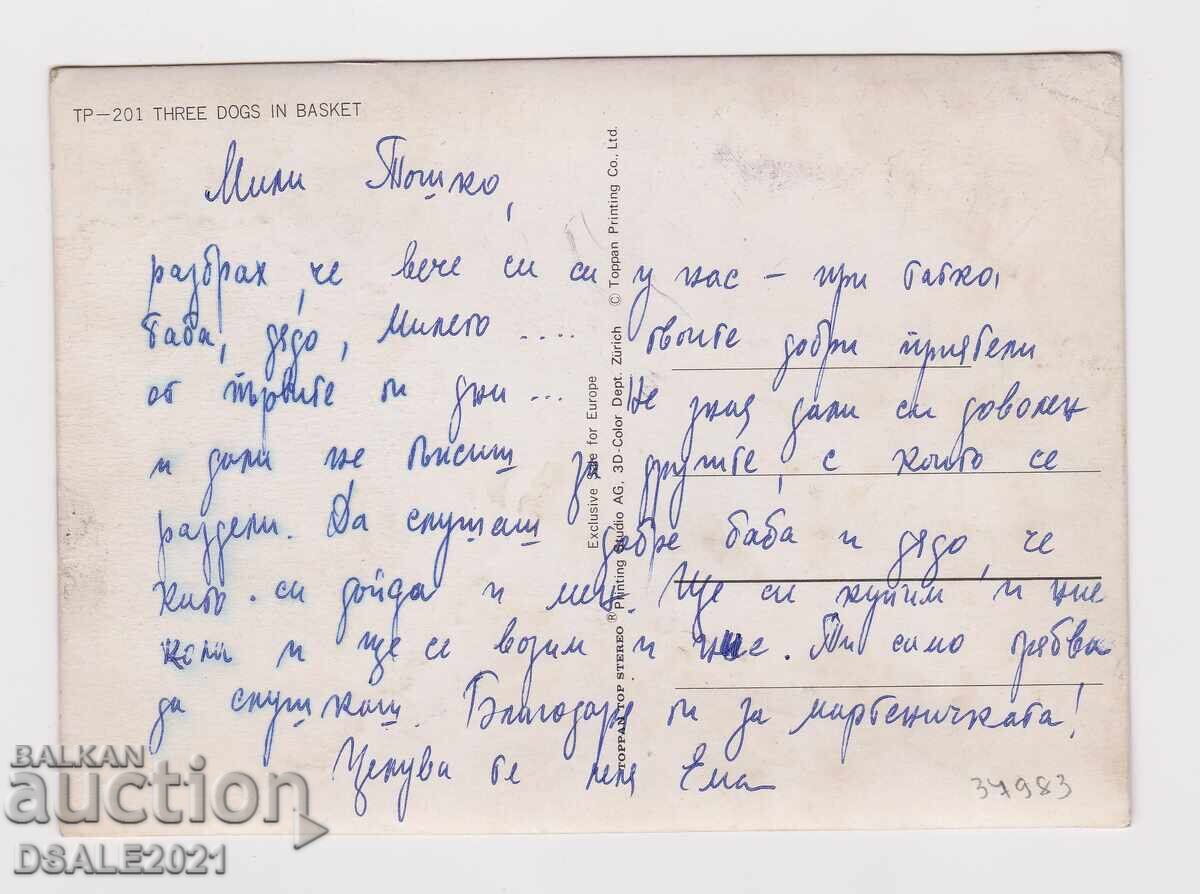 TP-201 THREE DOGS IN BASKET
Мили Тошко,
разбрах, че вече си си у нас - при татко,
баба, дядо, Милето .... твоите добри приятели
от първите ти дни ... Не зная дали си доволен
и дали не тъжиш за другите, с които се
раздели. Да слушаш добре баба и дядо, че
като си дойда и мен. Ще си купим и ние
кола и ще се возим и ние. Ти само трябва
да слушкаш. Благодаря ти за мартеничката!
Целува те леля Ема
37983
Exclusive Sale for Europe
TOPPAN TOP STEREO ® Printing Studio AG, 3D-Color Dept. Zürich © Toppan Printing Co., Ltd.
BALKAN
auction
DSALE2021